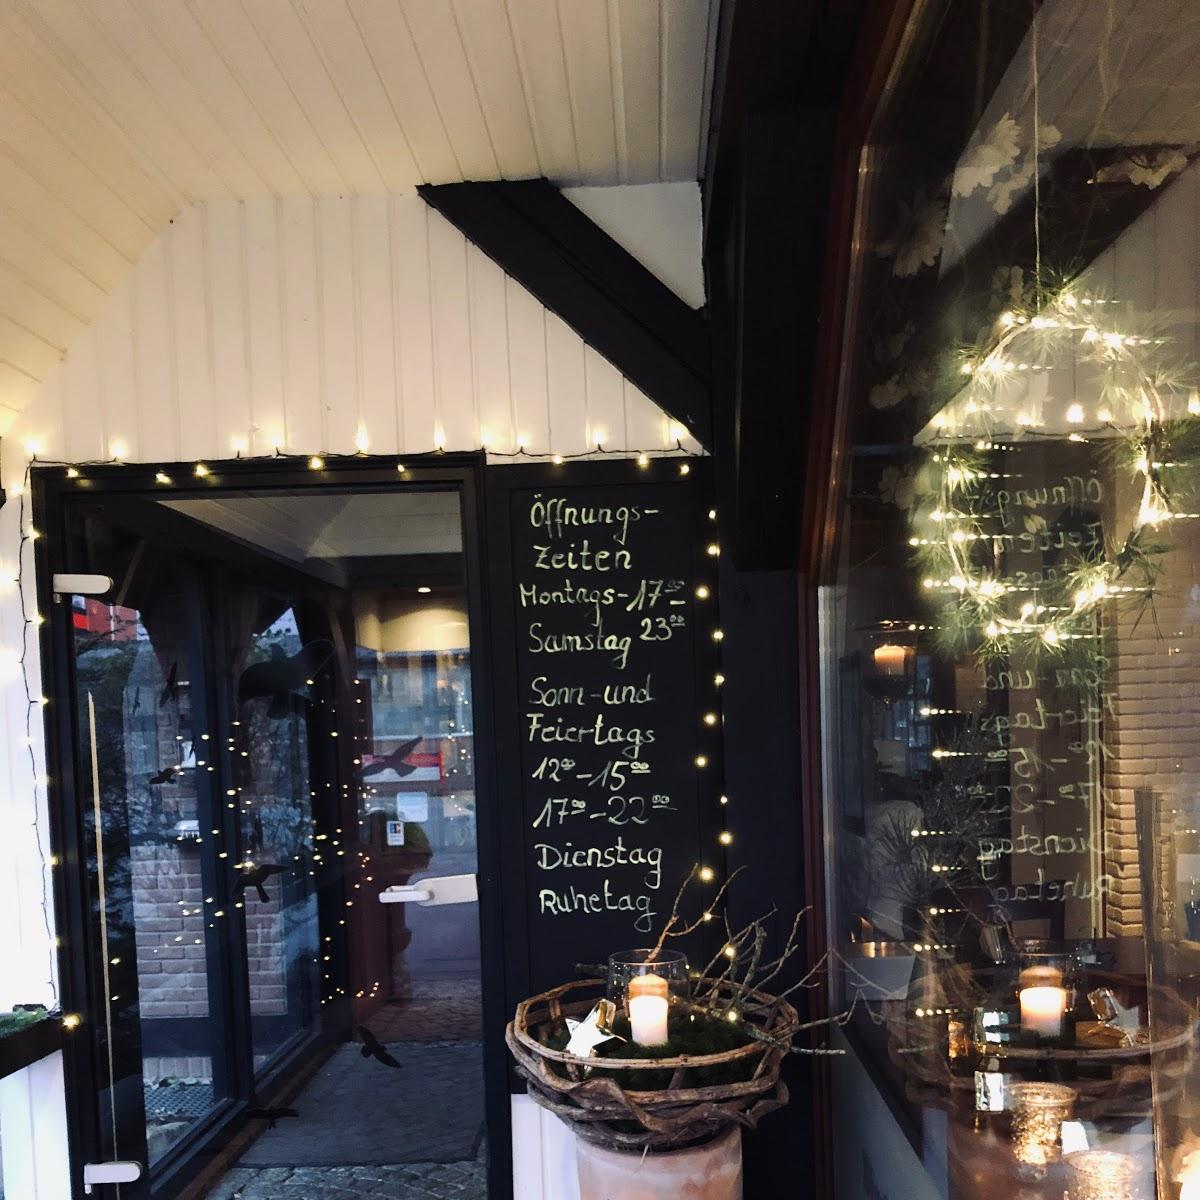 Öffnungs-
Zeiten
Montags-17⁰⁰-
Samstag 23⁰⁰
Sonn-und
Feiertags
12⁰⁰-15⁰⁰
17⁰⁰-22⁰⁰
Dienstag
Ruhetag